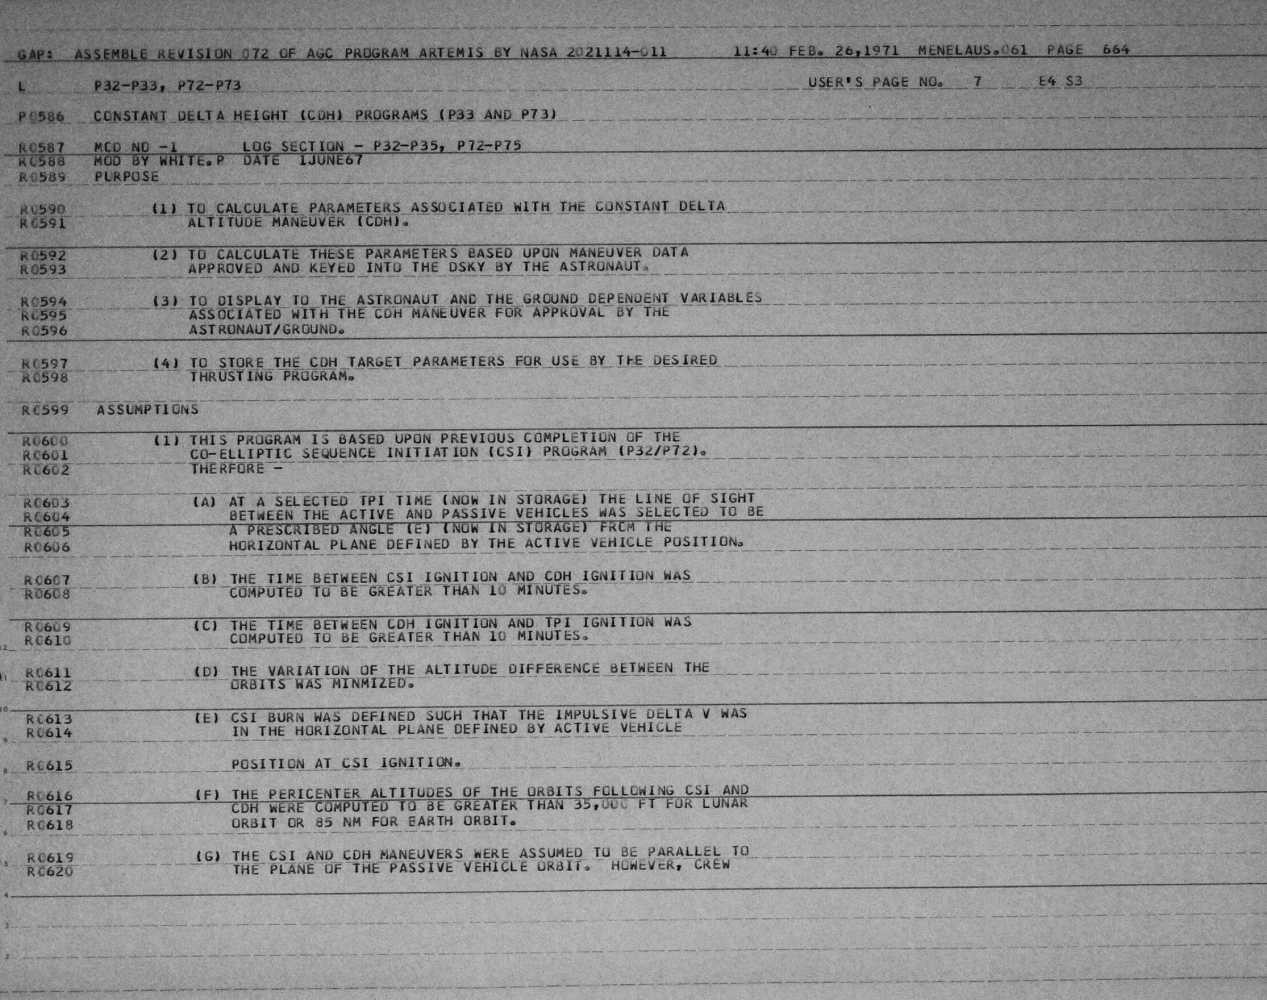 GAP: ASSEMBLE REVISION 072 OF AGC PROGRAM ARTEMIS BY NASA 2021114-011 11:40 FEB. 26,1971 MENELAUS.061 PAGE 664
L P32-P33, P72-P73 USER'S PAGE NO. 7 E4 S3
P0586 CONSTANT DELTA HEIGHT (CDH) PROGRAMS (P33 AND P73)
R0587 MOD NO -1 LOG SECTION - P32-P35, P72-P75
R0588 MOD BY WHITE.P DATE 1JUNE67
R0589 PURPOSE
R0590 (1) TO CALCULATE PARAMETERS ASSOCIATED WITH THE CONSTANT DELTA
R0591 ALTITUDE MANEUVER (CDH).
R0592 (2) TO CALCULATE THESE PARAMETERS BASED UPON MANEUVER DATA
R0593 APPROVED AND KEYED INTO THE DSKY BY THE ASTRONAUT.
R0594 (3) TO DISPLAY TO THE ASTRONAUT AND THE GROUND DEPENDENT VARIABLES
R0595 ASSOCIATED WITH THE CDH MANEUVER FOR APPROVAL BY THE
R0596 ASTRONAUT/GROUND.
R0597 (4) TO STORE THE CDH TARGET PARAMETERS FOR USE BY THE DESIRED
R0598 THRUSTING PROGRAM.
R0599 ASSUMPTIONS
R0600 (1) THIS PROGRAM IS BASED UPON PREVIOUS COMPLETION OF THE
R0601 CO-ELLIPTIC SEQUENCE INITIATION (CSI) PROGRAM (P32/P72).
R0602 THERFORE -
R0603 (A) AT A SELECTED TPI TIME (NOW IN STORAGE) THE LINE OF SIGHT
R0604 BETWEEN THE ACTIVE AND PASSIVE VEHICLES WAS SELECTED TO BE
R0605 A PRESCRIBED ANGLE (E) (NOW IN STORAGE) FROM THE
R0606 HORIZONTAL PLANE DEFINED BY THE ACTIVE VEHICLE POSITION.
R0607 (B) THE TIME BETWEEN CSI IGNITION AND CDH IGNITION WAS
R0608 COMPUTED TO BE GREATER THAN 10 MINUTES.
R0609 (C) THE TIME BETWEEN CDH IGNITION AND TPI IGNITION WAS
R0610 COMPUTED TO BE GREATER THAN 10 MINUTES.
12
R0611 (D) THE VARIATION OF THE ALTITUDE DIFFERENCE BETWEEN THE
11
R0612 ORBITS WAS MINMIZED.
10
R0613 (E) CSI BURN WAS DEFINED SUCH THAT THE IMPULSIVE DELTA V WAS
R0614 IN THE HORIZONTAL PLANE DEFINED BY ACTIVE VEHICLE
9
R0615 POSITION AT CSI IGNITION.
8
R0616 (F) THE PERICENTER ALTITUDES OF THE ORBITS FOLLOWING CSI AND
7
R0617 CDH WERE COMPUTED TO BE GREATER THAN 35,000 FT FOR LUNAR
R0618 ORBIT OR 85 NM FOR EARTH ORBIT.
6
R0619 (G) THE CSI AND CDH MANEUVERS WERE ASSUMED TO BE PARALLEL TO
5
R0620 THE PLANE OF THE PASSIVE VEHICLE ORBIT. HOWEVER, CREW
4
3
2